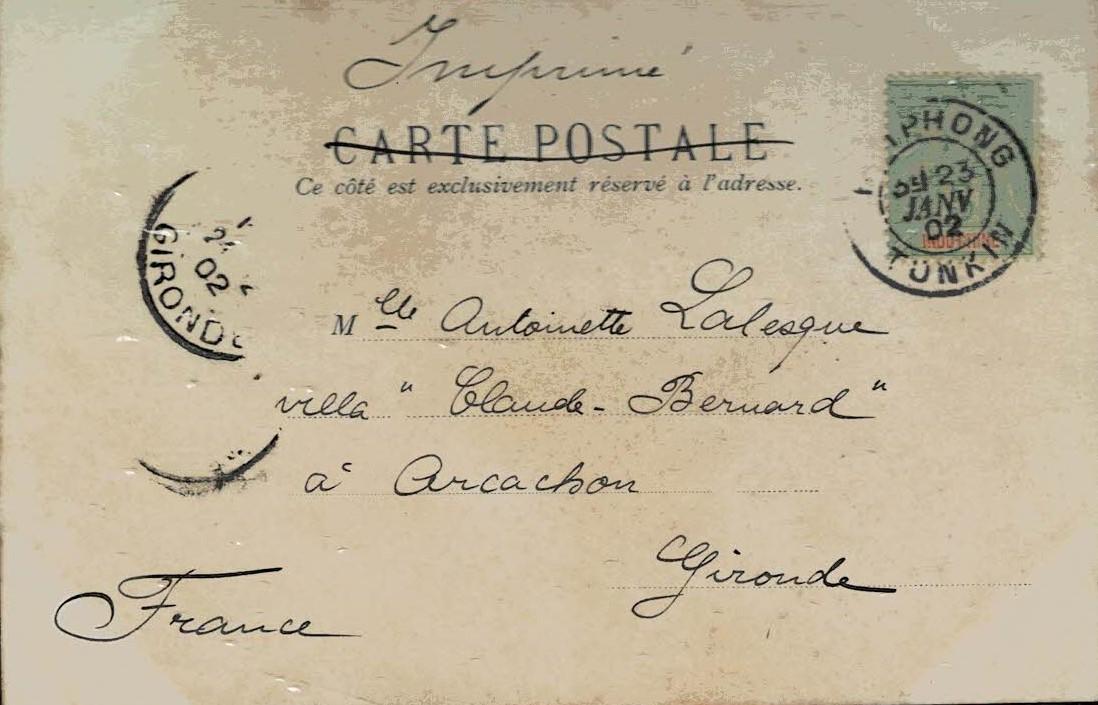 Imprimé
CARTE POSTALE
Ce côté est exclusivement réservé à l'adresse.
HAIPHONG
23
JANV
02
TONKIN
GIRONDE
02
Mlle Antoinette Lalesque
villa "Claude-Bernard"
à Arcachon
Gironde
France